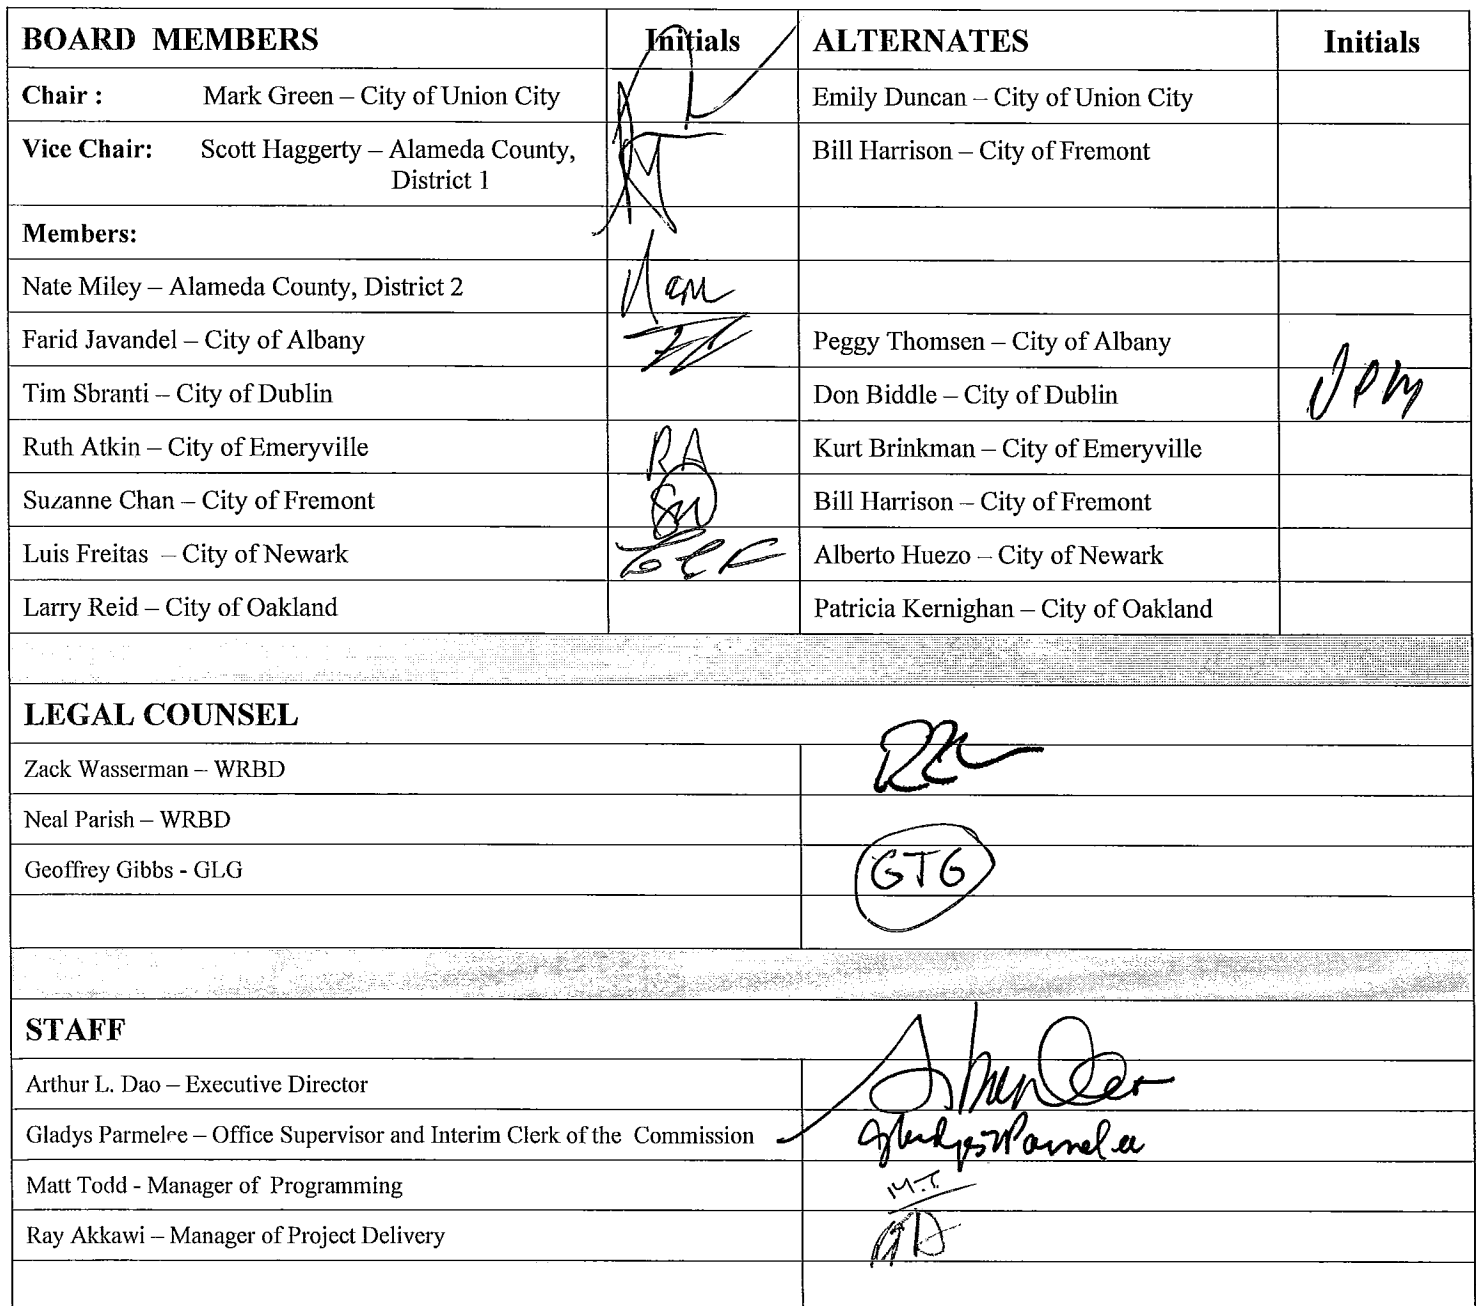 BOARD MEMBERS Initials ALTERNATES Initials
Chair : Mark Green – City of Union City Emily Duncan – City of Union City
Vice Chair: Scott Haggerty – Alameda County, Bill Harrison – City of Fremont
District 1
Members:
Nate Miley – Alameda County, District 2
Farid Javandel – City of Albany Peggy Thomsen – City of Albany
Tim Sbranti – City of Dublin Don Biddle – City of Dublin
Ruth Atkin – City of Emeryville RA Kurt Brinkman – City of Emeryville
Suzanne Chan – City of Fremont Bill Harrison – City of Fremont
Luis Freitas – City of Newark Alberto Huezo – City of Newark
Larry Reid – City of Oakland Patricia Kernighan – City of Oakland
LEGAL COUNSEL
Zack Wasserman – WRBD
Neal Parish – WRBD
Geoffrey Gibbs - GLG GTG
STAFF
Arthur L. Dao – Executive Director
Gladys Parmelee – Office Supervisor and Interim Clerk of the Commission Gladys Parmelee
Matt Todd - Manager of Programming M.T.
Ray Akkawi – Manager of Project Delivery